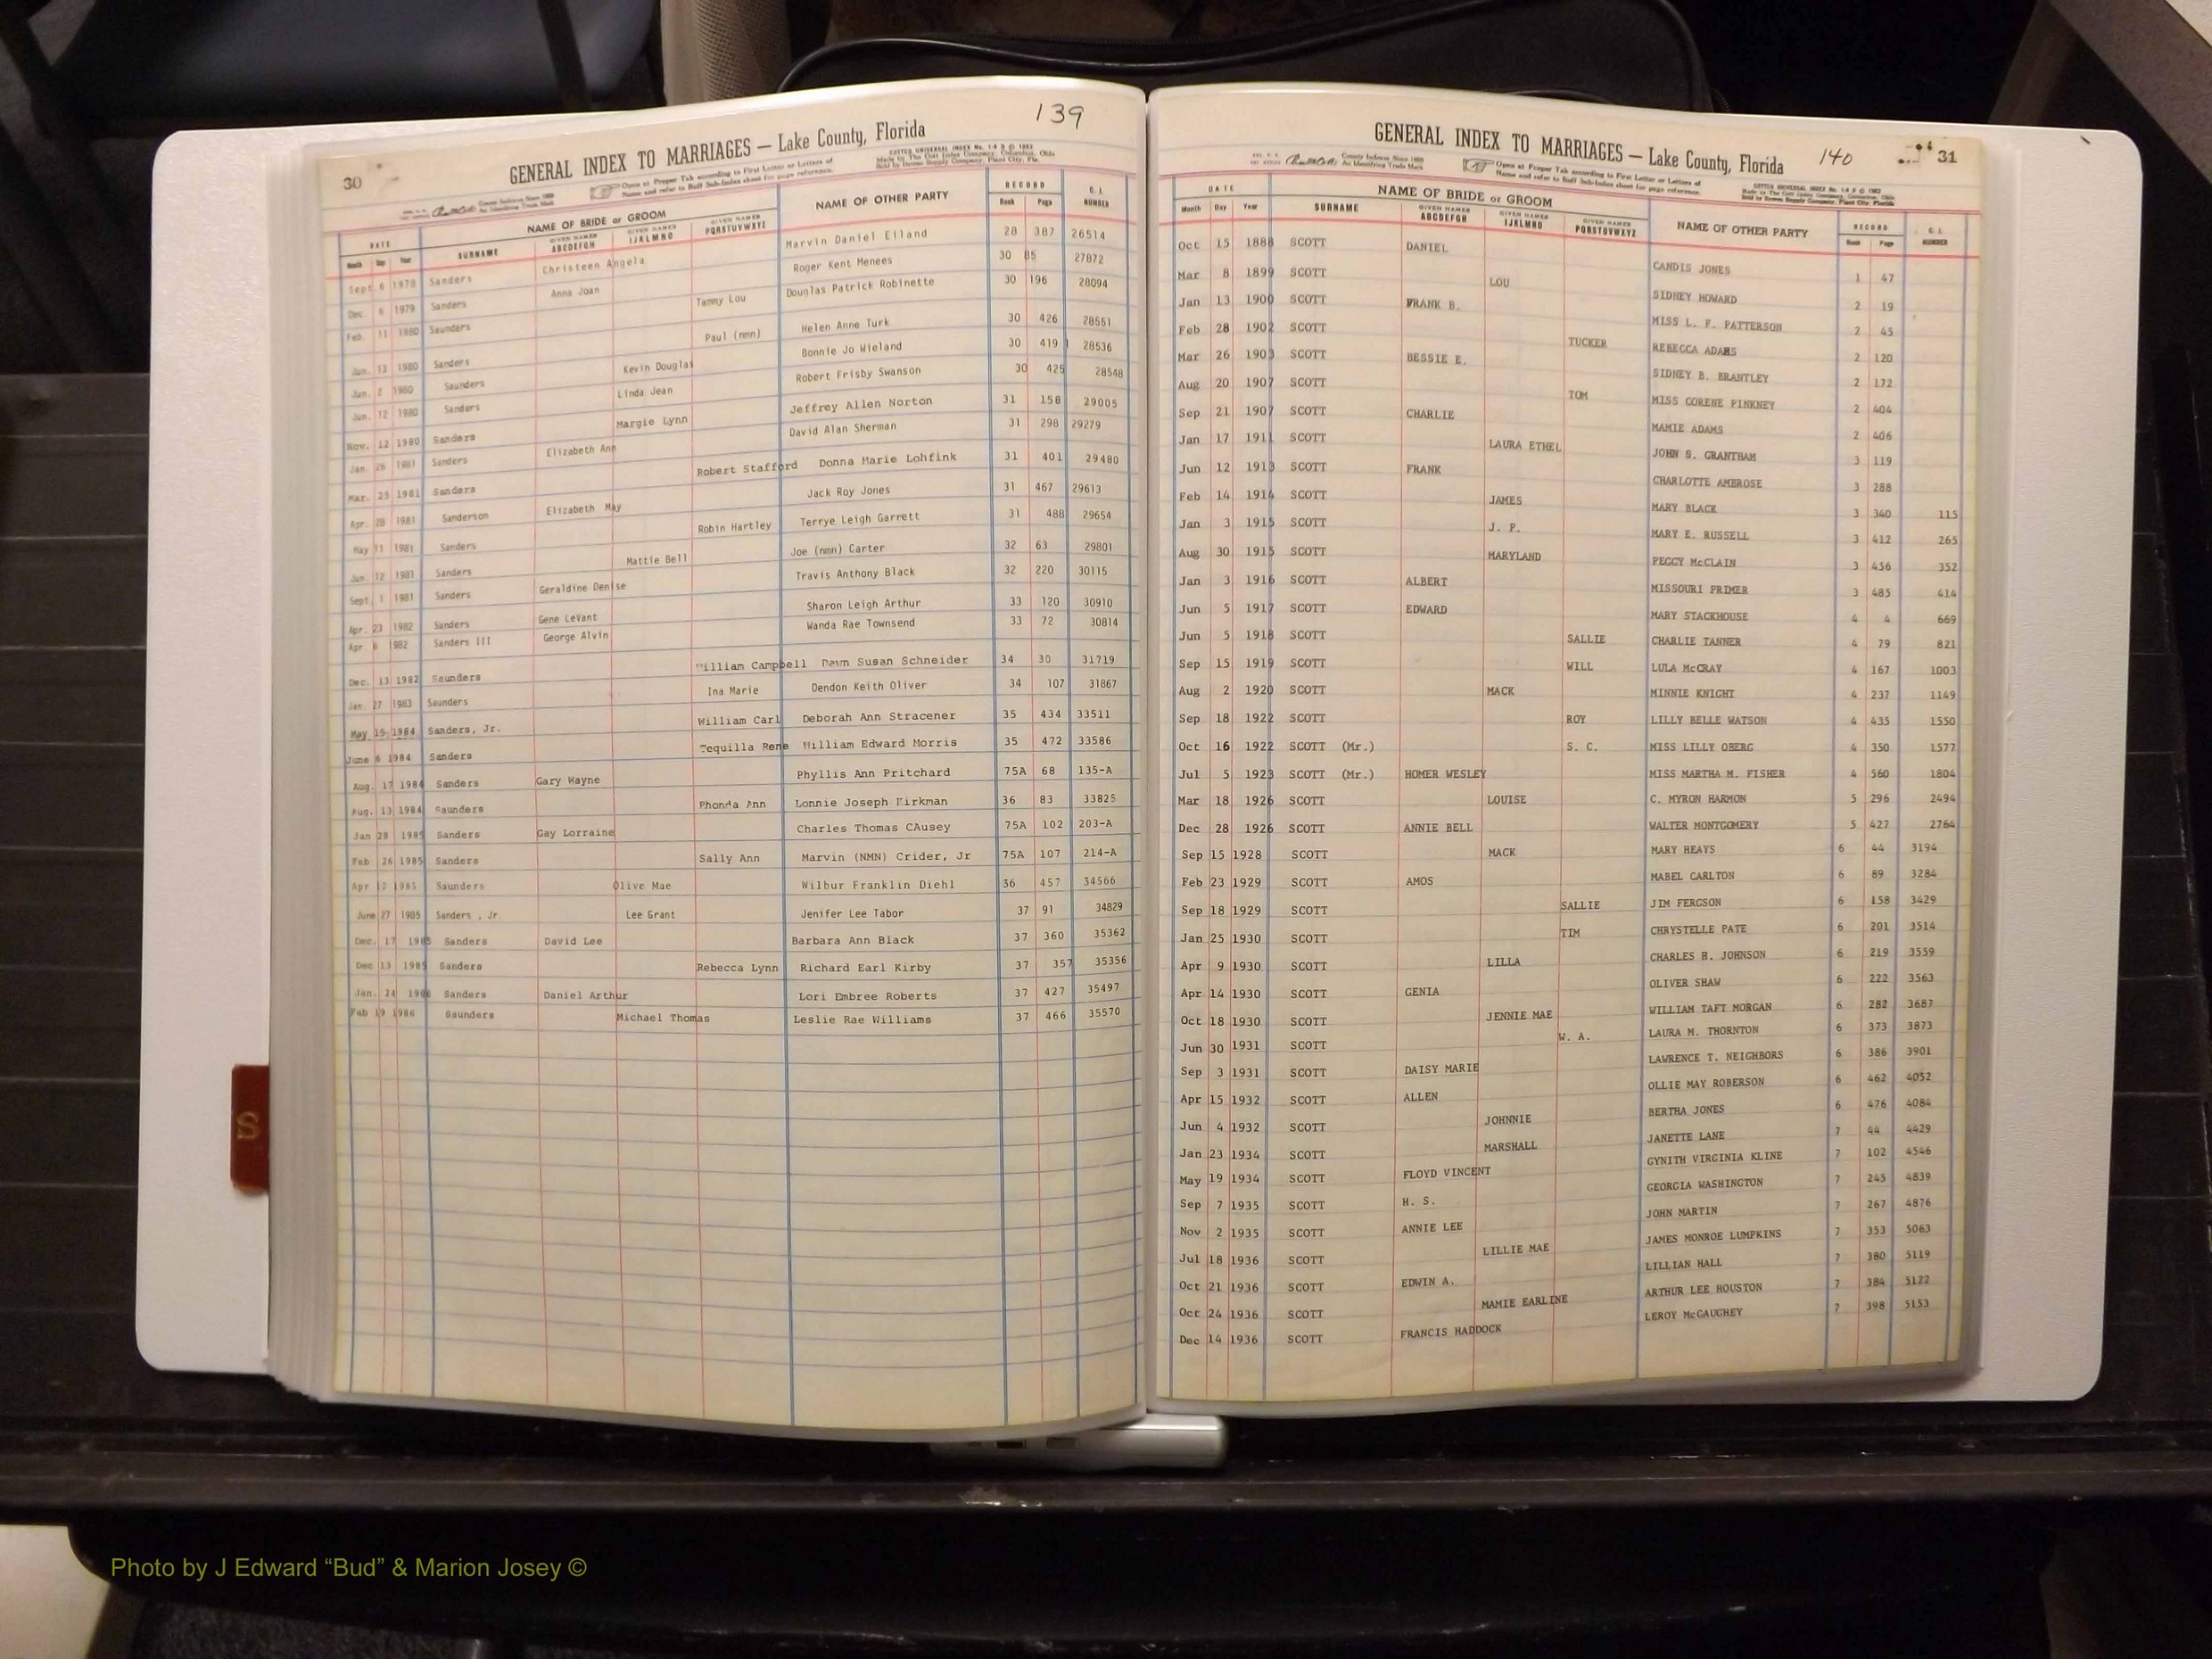 139
30
GENERAL INDEX TO MARRIAGES — Lake County, Florida
Open at Proper Tab according to First Letter or Letters of
Name and refer to Buff Sub-Index sheet for page reference.
DATE NAME OF BRIDE or GROOM NAME OF OTHER PARTY RECORD C. L. NUMBER
Month Day Year SURNAME GIVEN NAMES ABCDEFGH GIVEN NAMES IJKLMNO GIVEN NAMES PQRSTUVWXYZ Book Page
Sept 6 1978 Sanders Christeen Angela Marvin Daniel Eiland 28 387 26514
Dec 6 1979 Sanders Anna Joan Roger Kent Menees 30 85 27872
Feb 11 1980 Saunders Tammy Lou Douglas Patrick Robinette 30 196 28094
Jun. 13 1980 Sanders Paul (nmn) Helen Anne Turk 30 426 28551
Jun. 2 1980 Saunders Kevin Douglas Bonnie Jo Wieland 30 419 28536
Jun. 12 1980 Sanders Linda Jean Robert Frisby Swanson 30 425 28548
Nov. 12 1980 Sanders Margie Lynn Jeffrey Allen Norton 31 158 29005
Jan. 26 1981 Sanders Elizabeth Ann David Alan Sherman 31 298 29279
Mar. 25 1981 Sanders Robert Stafford Donna Marie Lohfink 31 401 29480
Apr. 28 1981 Sanderson Elizabeth May Jack Roy Jones 31 467 29613
May 11 1981 Sanders Robin Hartley Terrye Leigh Garrett 31 488 29654
Jun. 12 1981 Sanders Mattie Bell Joe (nmn) Carter 32 63 29801
Sept. 1 1981 Sanders Geraldine Denise Travis Anthony Black 32 220 30115
Apr. 23 1982 Sanders Gene LeVant Sharon Leigh Arthur 33 120 30910
Apr 6 1982 Sanders III George Alvin Wanda Rae Townsend 33 72 30814
Dec. 13 1982 Saunders William Campbell Dawn Susan Schneider 34 30 31719
Jan. 27 1983 Saunders Ina Marie Dendon Keith Oliver 34 107 31867
May 15 1984 Sanders, Jr. William Carl Deborah Ann Stracener 35 434 33511
June 6 1984 Sanders Tequilla Rene William Edward Morris 35 472 33586
Aug. 17 1984 Sanders Gary Wayne Phyllis Ann Pritchard 75A 68 135-A
Aug. 13 1984 Saunders Phonda Ann Lonnie Joseph Kirkman 36 83 33825
Jan 28 1985 Sanders Gay Lorraine Charles Thomas CAusey 75A 102 203-A
Feb 26 1985 Sanders Sally Ann Marvin (NMN) Crider, Jr 75A 107 214-A
Apr 12 1985 Saunders Olive Mae Wilbur Franklin Diehl 36 457 34566
June 27 1985 Sanders , Jr. Lee Grant Jenifer Lee Tabor 37 91 34829
Dec. 17 1985 Sanders David Lee Barbara Ann Black 37 360 35362
Dec 13 1985 Sanders Rebecca Lynn Richard Earl Kirby 37 357 35356
Jan. 24 1986 Sanders Daniel Arthur Lori Embree Roberts 37 427 35497
Feb 19 1986 Saunders Michael Thomas Leslie Rae Williams 37 466 35570
S
140
31
GENERAL INDEX TO MARRIAGES — Lake County, Florida
Open at Proper Tab according to First Letter or Letters of
Name and refer to Buff Sub-Index sheet for page reference.
DATE NAME OF BRIDE or GROOM NAME OF OTHER PARTY RECORD C. L. NUMBER
Month Day Year SURNAME GIVEN NAMES ABCDEFGH GIVEN NAMES IJKLMNO GIVEN NAMES PQRSTUVWXYZ Book Page
Oct 15 1888 SCOTT DANIEL CANDIS JONES 1 47
Mar 8 1899 SCOTT LOU SIDNEY HOWARD 2 19
Jan 13 1900 SCOTT FRANK B. MISS L. F. PATTERSON 2 45
Feb 28 1902 SCOTT TUCKER REBECCA ADAMS 2 120
Mar 26 1903 SCOTT BESSIE E. SIDNEY B. BRANTLEY 2 172
Aug 20 1907 SCOTT TOM MISS CORENE PINKNEY 2 404
Sep 21 1907 SCOTT CHARLIE MAMIE ADAMS 2 406
Jan 17 1911 SCOTT LAURA ETHEL JOHN S. GRANTHAM 3 119
Jun 12 1913 SCOTT FRANK CHARLOTTE AMBROSE 3 288
Feb 14 1914 SCOTT JAMES MARY BLACK 3 340 115
Jan 3 1915 SCOTT J. P. MARY E. RUSSELL 3 412 265
Aug 30 1915 SCOTT MARYLAND PEGGY McCLAIN 3 456 352
Jan 3 1916 SCOTT ALBERT MISSOURI PRIMER 3 485 414
Jun 5 1917 SCOTT EDWARD MARY STACKHOUSE 4 4 669
Jun 5 1918 SCOTT SALLIE CHARLIE TANNER 4 79 821
Sep 15 1919 SCOTT WILL LULA McCRAY 4 167 1003
Aug 2 1920 SCOTT MACK MINNIE KNIGHT 4 237 1149
Sep 18 1922 SCOTT ROY LILLY BELLE WATSON 4 435 1550
Oct 16 1922 SCOTT (Mr.) S. C. MISS LILLY OBERG 4 350 1577
Jul 5 1923 SCOTT (Mr.) HOMER WESLEY MISS MARTHA M. FISHER 4 560 1804
Mar 18 1926 SCOTT LOUISE C. MYRON HARMON 5 296 2494
Dec 28 1926 SCOTT ANNIE BELL WALTER MONTGOMERY 5 427 2764
Sep 15 1928 SCOTT MACK MARY HEAYS 6 44 3194
Feb 23 1929 SCOTT AMOS MABEL CARLTON 6 89 3284
Sep 18 1929 SCOTT SALLIE JIM FERGSON 6 158 3429
Jan 25 1930 SCOTT TIM CHRYSTELLE PATE 6 201 3514
Apr 9 1930 SCOTT LILLA CHARLES H. JOHNSON 6 219 3559
Apr 14 1930 SCOTT GENIA OLIVER SHAW 6 222 3563
Oct 18 1930 SCOTT JENNIE MAE WILLIAM TAFT MORGAN 6 282 3687
Jun 30 1931 SCOTT W. A. LAURA M. THORNTON 6 373 3873
Sep 3 1931 SCOTT DAISY MARIE LAWRENCE T. NEIGHBORS 6 386 3901
Apr 15 1932 SCOTT ALLEN OLLIE MAY ROBERSON 6 462 4052
Jun 4 1932 SCOTT JOHNNIE BERTHA JONES 6 476 4084
Jan 23 1934 SCOTT MARSHALL JANETTE LANE 7 44 4429
May 19 1934 SCOTT FLOYD VINCENT GYNITH VIRGINIA KLINE 7 102 4546
Sep 7 1935 SCOTT H. S. GEORGIA WASHINGTON 7 245 4839
Nov 2 1935 SCOTT ANNIE LEE JOHN MARTIN 7 267 4876
Jul 18 1936 SCOTT LILLIE MAE JAMES MONROE LUMPKINS 7 353 5063
Oct 21 1936 SCOTT EDWIN A. LILLIAN HALL 7 380 5119
Oct 24 1936 SCOTT MAMIE EARLINE ARTHUR LEE HOUSTON 7 384 5122
Dec 14 1936 SCOTT FRANCIS HADDOCK LEROY McGAUGHEY 7 398 5153
Photo by J Edward “Bud” & Marion Josey ©